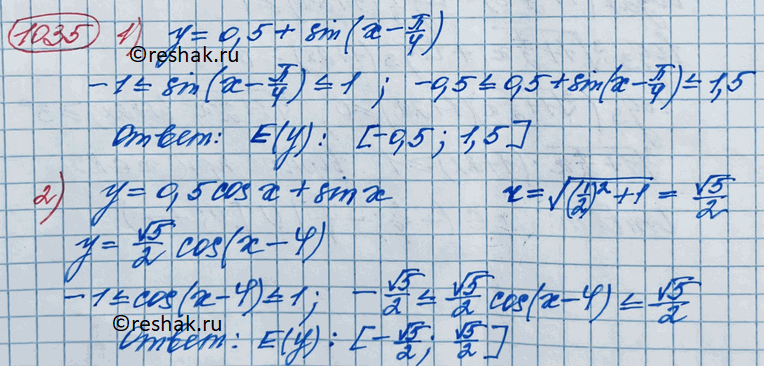 1035 1) y = 0,5 + sin(x - π/4)
©reshak.ru
-1 ≤ sin(x - π/4) ≤ 1 ; -0,5 ≤ 0,5 + sin(x - π/4) ≤ 1,5
Ответ: E(y): [-0,5 ; 1,5]
2) y = 0,5 cos x + sin x r = √((1/2)² + 1) = √5/2
y = √5/2 cos(x - φ)
-1 ≤ cos(x - φ) ≤ 1 ; -√5/2 ≤ √5/2 cos(x - φ) ≤ √5/2
©reshak.ru
Ответ: E(y): [-√5/2 ; √5/2]